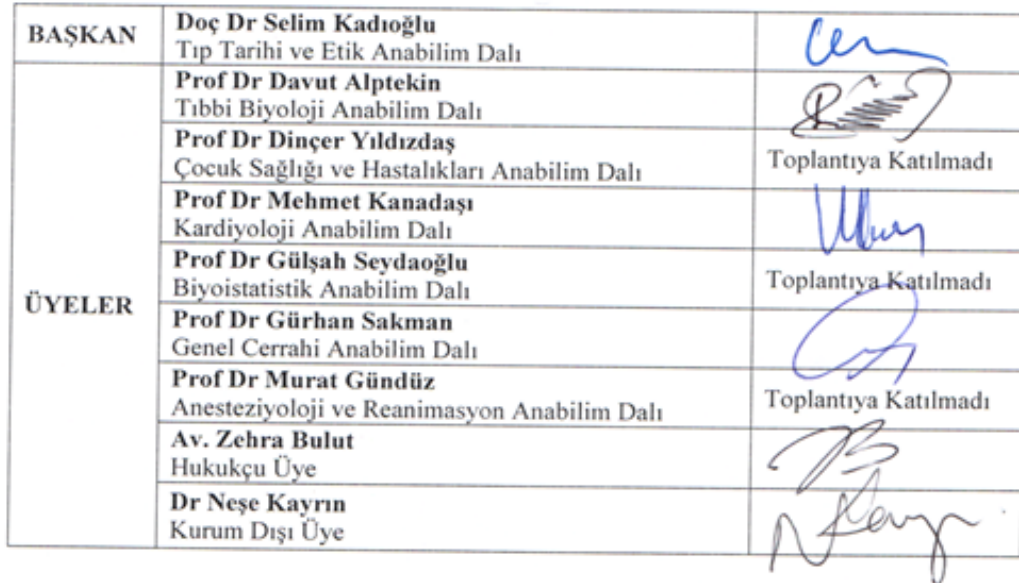 BAŞKAN
Doç Dr Selim Kadıoğlu
Tıp Tarihi ve Etik Anabilim Dalı
ÜYELER
Prof Dr Davut Alptekin
Tıbbi Biyoloji Anabilim Dalı
Prof Dr Dinçer Yıldızdaş
Çocuk Sağlığı ve Hastalıkları Anabilim Dalı
Toplantıya Katılmadı
Prof Dr Mehmet Kanadaşı
Kardiyoloji Anabilim Dalı
Prof Dr Gülşah Seydaoğlu
Biyoistatistik Anabilim Dalı
Toplantıya Katılmadı
Prof Dr Gürhan Sakman
Genel Cerrahi Anabilim Dalı
Prof Dr Murat Gündüz
Anesteziyoloji ve Reanimasyon Anabilim Dalı
Toplantıya Katılmadı
Av. Zehra Bulut
Hukukçu Üye
Dr Neşe Kayrın
Kurum Dışı Üye